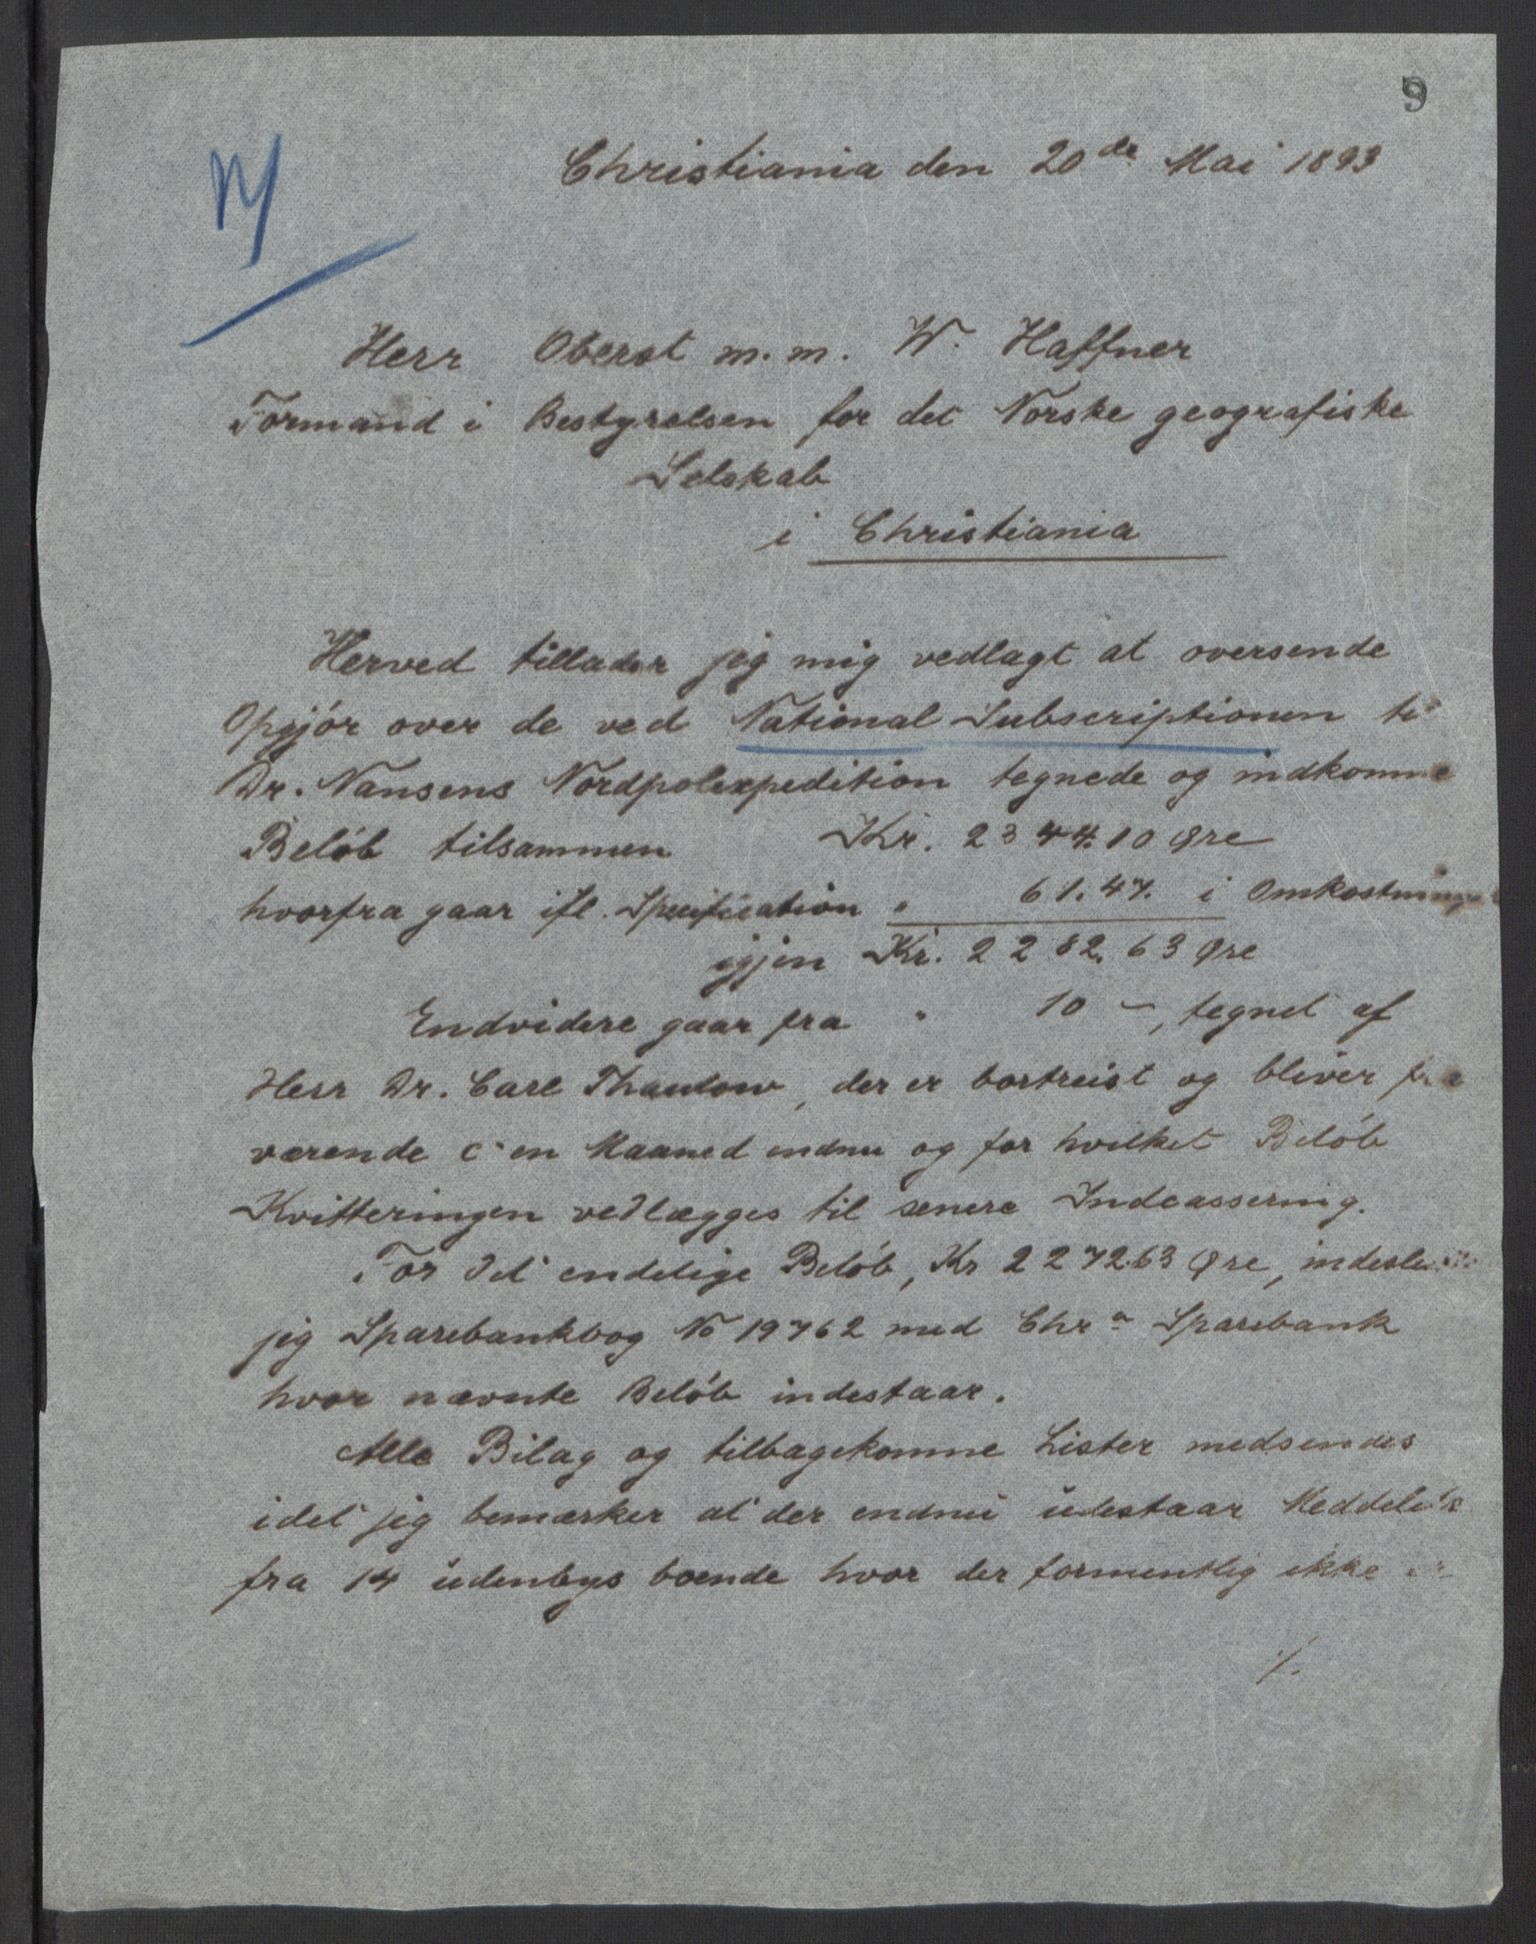 9
Christiania den 20de Mai 1893
Herr Oberst m.m. W. Haffner
Formand i Bestyrelsen for det Norske geografiske
Selskab
i Christiania
Herved tillader jeg mig vedlagt at oversende
Opgjör over de ved National Subscriptionen
Dr. Nansens Nordpolexpedition tegnede og indkomne
Belöb tilsammen Kr. 2344.10 Øre
hvorfra gaar ifl. Specification " 61.47. i Omkostninger
igjen Kr. 2282.63 Øre
Endvidere gaar fra " 10 –, tegnet af
Herr Dr. Carl Thaulow, der er bortreist og bliver fra
værende c: en Maaned endnu og for hvilket Belöb
Kvitteringen vedlægges til senere Indcassering.
For det endelige Belöb, Kr 2272.63 Øre,
jeg Sparebankbog No 19762 med Chra Sparebank
hvor nævnte Belöb indestaar.
Alle Bilag og tilbagekomne Lister medsendes
idet jeg bemærker at der endnu udestaar
fra 14 udenbys boende hvor der formentlig ikke
./.